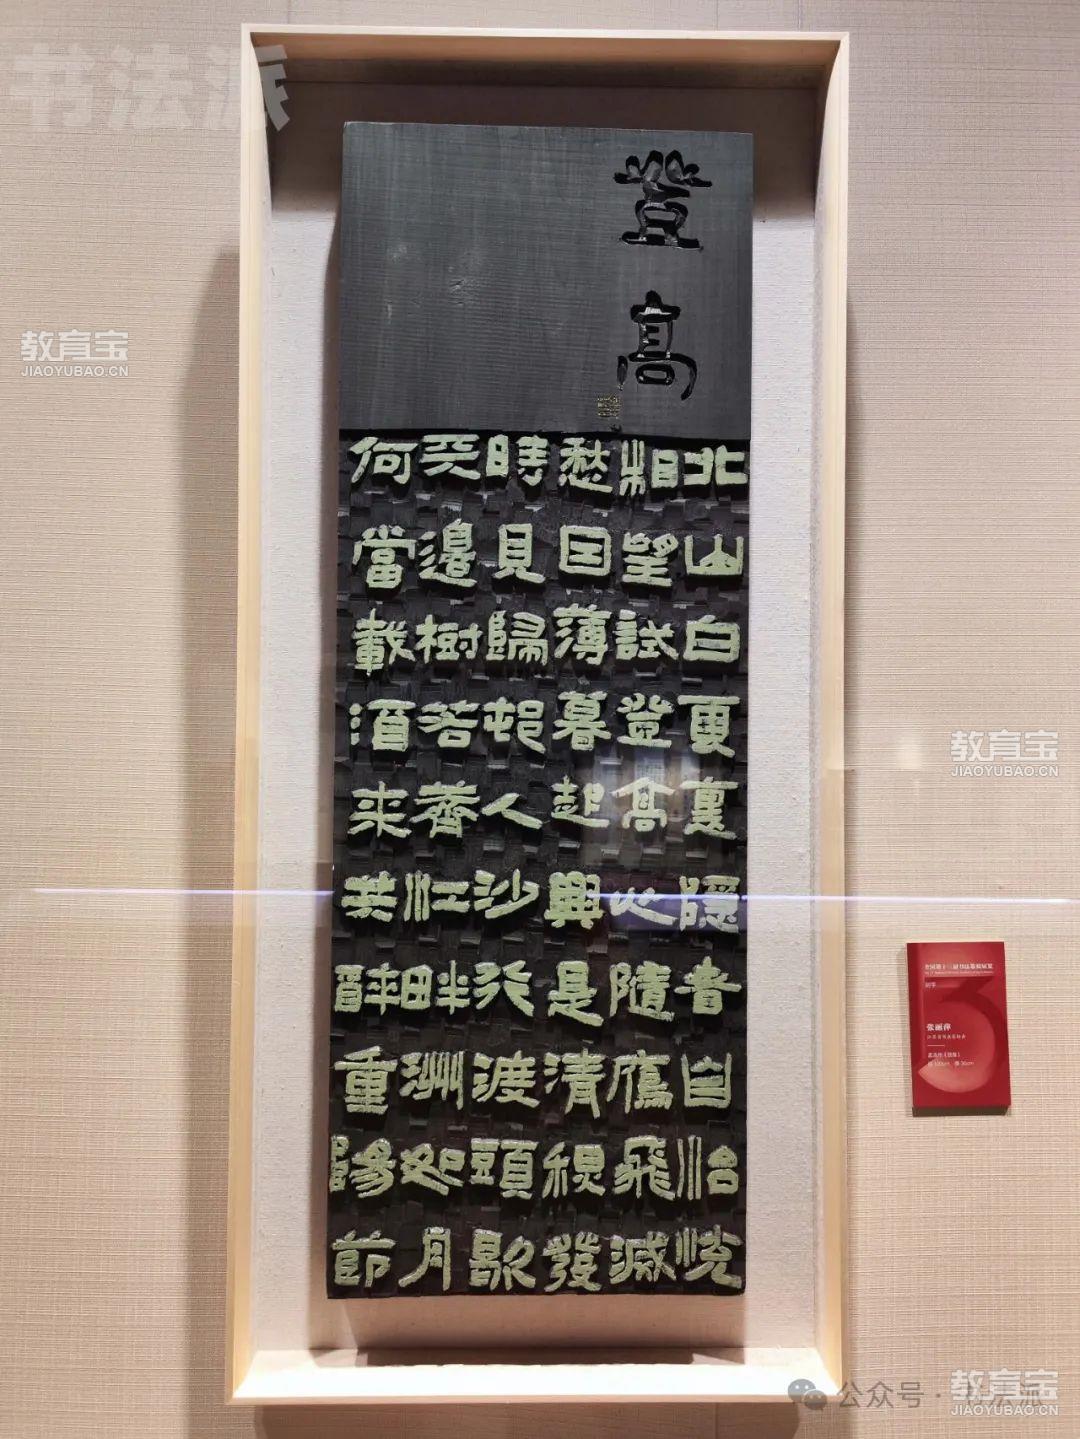 书法派
登高
北山白更裏隱者自怡悅
相望試登高心隨鴈飛滅
愁因薄暮起興是清秋發
時見歸邨人沙行渡頭歇
天邊樹若薺江畔洲如月
何當載酒來共醉重陽節
全国第十三届书法篆刻展览
刻字
张丽萍
教育宝
JIAOYUBAO.CN
教育宝
JIAOYUBAO.CN
公众号 · 书法派
教育宝
JIAOYUBAO.CN